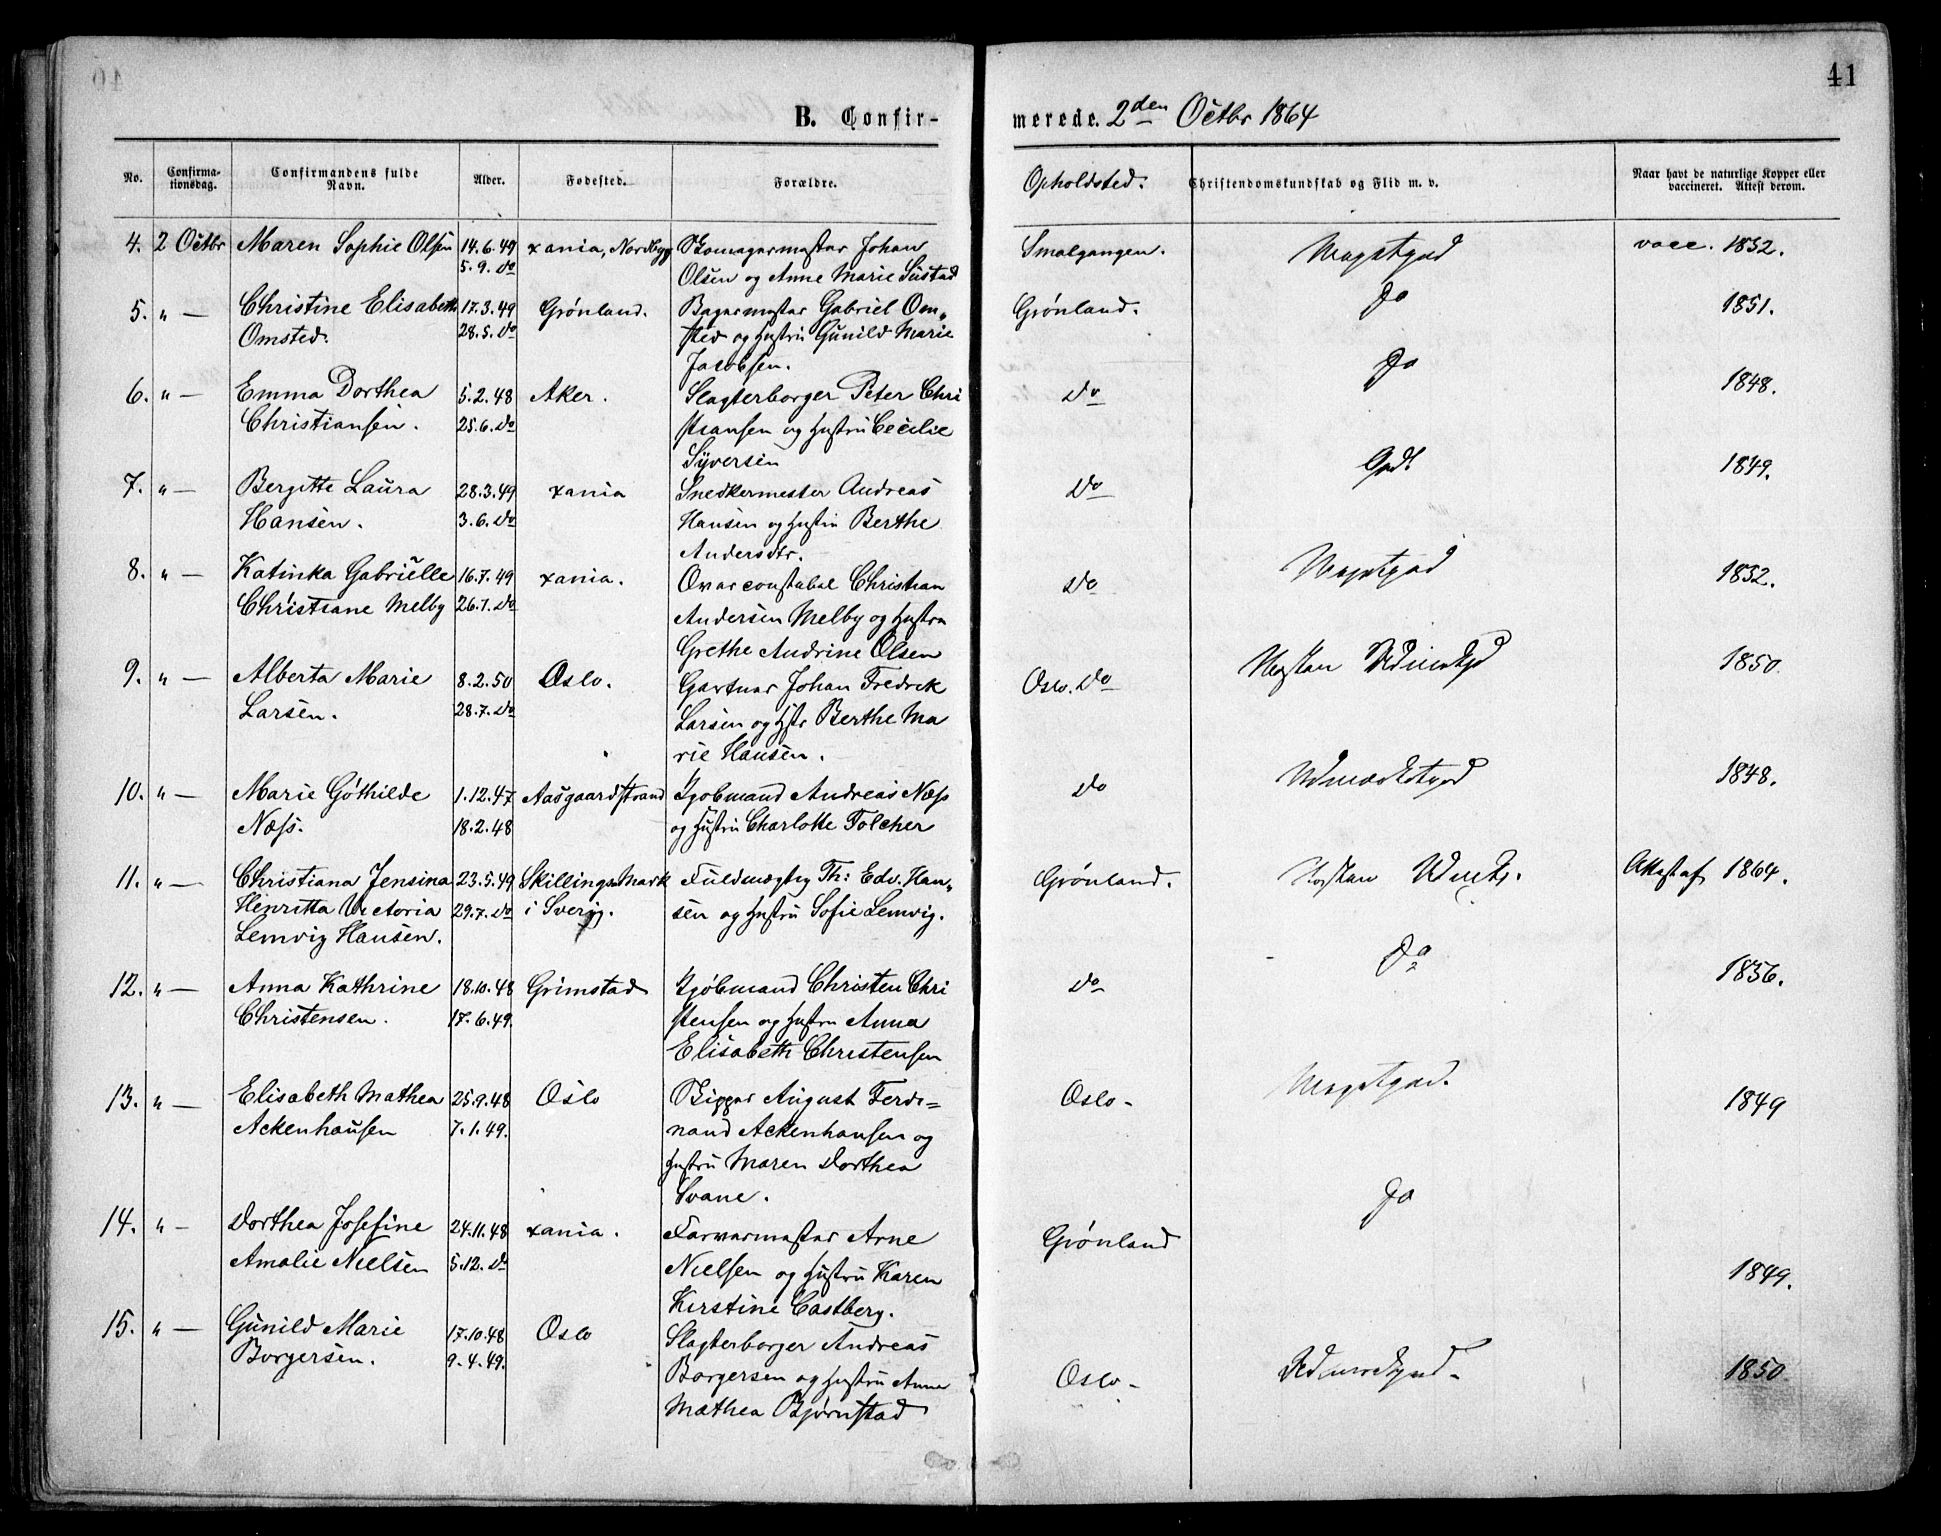 41
B. Confirmerede. 2den Octbr 1864
No. Confirmationsdag. Confirmandens fulde Navn. Alder. Fødested. Forældre. Opholdsted. Christendomskundskab og Flid m. v. Naar havt de naturlige Kopper eller vaccineret. Attest derom.
4. 2 Octbr Maren Sophie Olsen 14.6.49 xania, Nordbyg Skomagermester Johan Smalgangen. Megetgod vacc. 1852.
5.9. do Olsen og Anne Marie Sustad
5. " — Christine Elisabeth 17.3.49 Grønland. Bagermester Gabriel Om„ Grønland. do 1851.
Omsted. 28.5. do sted og Hustru Gunild Marie
Jacobsen.
6. " — Emma Dorthea 5.2.48 Aker. Slagterborger Peter Chri do do 1848.
Christiansen. 25.6. do stiansen og Hustru Cecilie
Syversen
7. " — Bergitte Laura 28.3.49 xania Snedkermester Andreas do Godt 1849.
Hansen. 3.6. do Hansen og Hustru Berthe
Andersdtr.
8. " — Katinka Gabrielle 16.7.49 xania. Overconstabel Christian do Megetgod 1852.
Christiane Melby 26.7. do Andersen Melby og Hustru
Grethe Andrine Olsen
9. " — Alberta Marie 8.2.50 Oslo. Gartner Johan Fredrek Oslo. do Næsten Udmerktgod 1850.
Larsen. 28.7. do Larsen og Hstr Berthe Ma
rie Hansen.
10. " — Marie Gøthilde 1.12.47 Aasgaardstrand Kjøbmand Andreas Næss do Udmærketgod 1848.
Næss. 18.2.48 og Hustru Charlotte Folcher
11. " — Christiana Jensina 23.5.49 Skillings Mark Fuldmægtig Th: Edv. Han„ Grønland. Næsten Attest af 1864.
Henritta Victoria 29.7. do i Sverig. sen og Hustru Sofie Lemvig.
Lemvig Hansen.
12. " — Anna Kathrine 18.10.48 Grimstad Kjøbmand Christen Chri do do 1856.
Christensen. 17.6.49. stensen og Hustru Anna
Elisabeth Christensen
13. " — Elisabeth Mathea 25.9.48 Oslo August Ferdi= Oslo - Megetgod. 1849
Ackenhausen 7.1.49. nand Ackenhausen og
Hustru Maren Dorthea
Svane.
14. " — Dorthea Josefine 24.11.48 xania. Farvermester Arne Grønland do
Amalie Nielsen 5.12. do Nielsen og Hustru Karen 1849.
Kirstine Castberg.
15. " — Gunild Marie 17.10.48 Oslo Slagterborger Andreas
Borgersen. 9.4.49. Borgersen og Hustru Anne Oslo - Udmerketgod - 1850
Mathea Bjørnstad